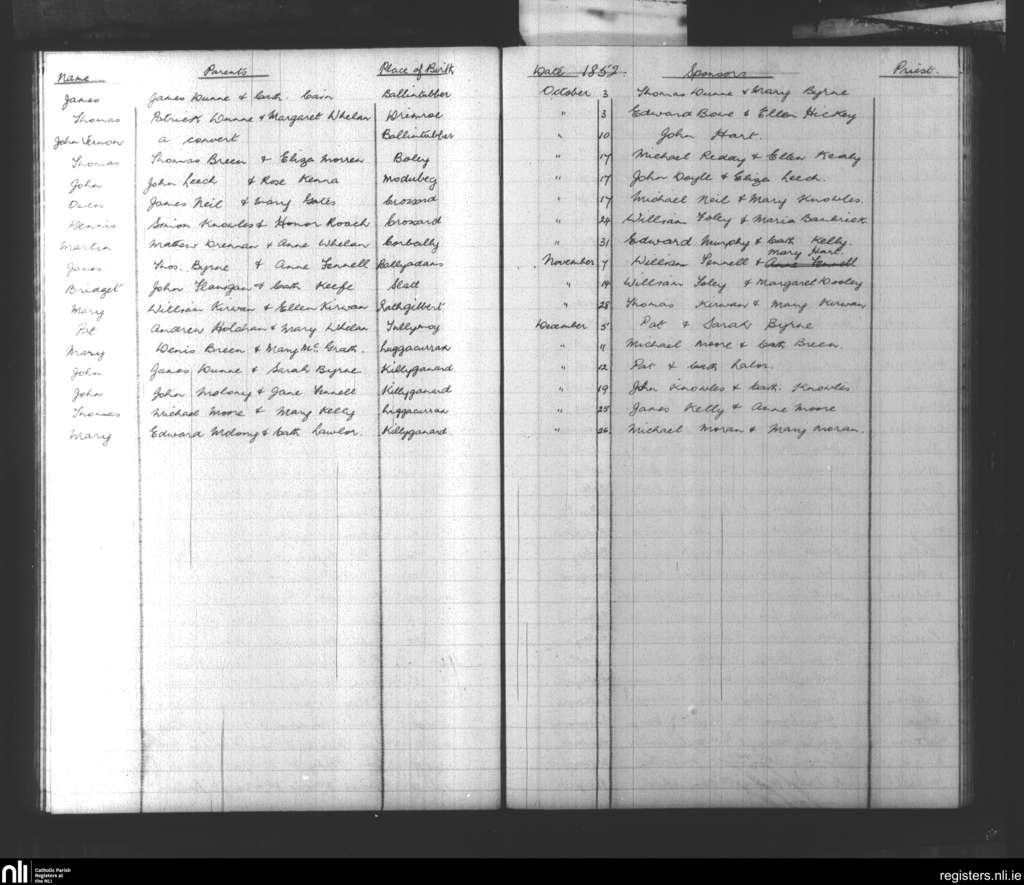 Name Parents Place of Birth Date 1852. Sponsors Priest.
James James Dunne & Cath. Cain Ballintubber October 3 Thomas Dunne & Mary Byrne
Thomas Patrick Dunne & Margaret Whelan Drimroe " 3 Edward Bowe & Ellen Hickey
John Vernon a convert Ballintubber " 10 John Hart.
Thomas Thomas Breen & Eliza Morren Boley " 17 Michael Redday & Ellen Kealy
John John Leech & Rose Kenna Modubeg " 17 John Doyle & Eliza Leech.
Owen James Neil & Mary Crossard " 17 Michael Neil & Mary Knowles.
Dennis Simon Knowles & Honor Roach Crossard " 24 William Foley & Maria Bambrick
Martin Mathew Drennan & Anne Whelan Corbally " 31 Edward Murphy & Cath Kelly.
Mary Hart.
James Thos. Byrne & Anne Fennell Ballyadams November 7 William Fennell & Anne Fennell
Bridget John Flanigan & Cath Keefe Slatt " 14 William Foley & Margaret Dooley
Mary William Kirwan & Ellen Kirwan Rathgilbert " 28 Thomas Kirwan & Mary Kirwan
Pat Andrew Holohan & Mary Whelan Tullymoy December 5 Pat & Sarah Byrne
Mary Denis Breen & Mary Mc. Grath. Luggacurran " 11 Michael Moore & Cath Breen.
John James Dunne & Sarah Byrne Killyganard " 12 Pat & Cath Lalor.
John John Molony & Jane Fennell Killyganard " 19 John Knowles & Cath. Knowles
Thomas Michael Moore & Mary Kelly Luggacurran " 25 James Kelly & Anne Moore
Mary Edward Molony & Cath Lawlor. Killyganard. " 26 Michael Moran & Mary Moran.
nli Catholic Parish Registers at the NLI registers.nli.ie